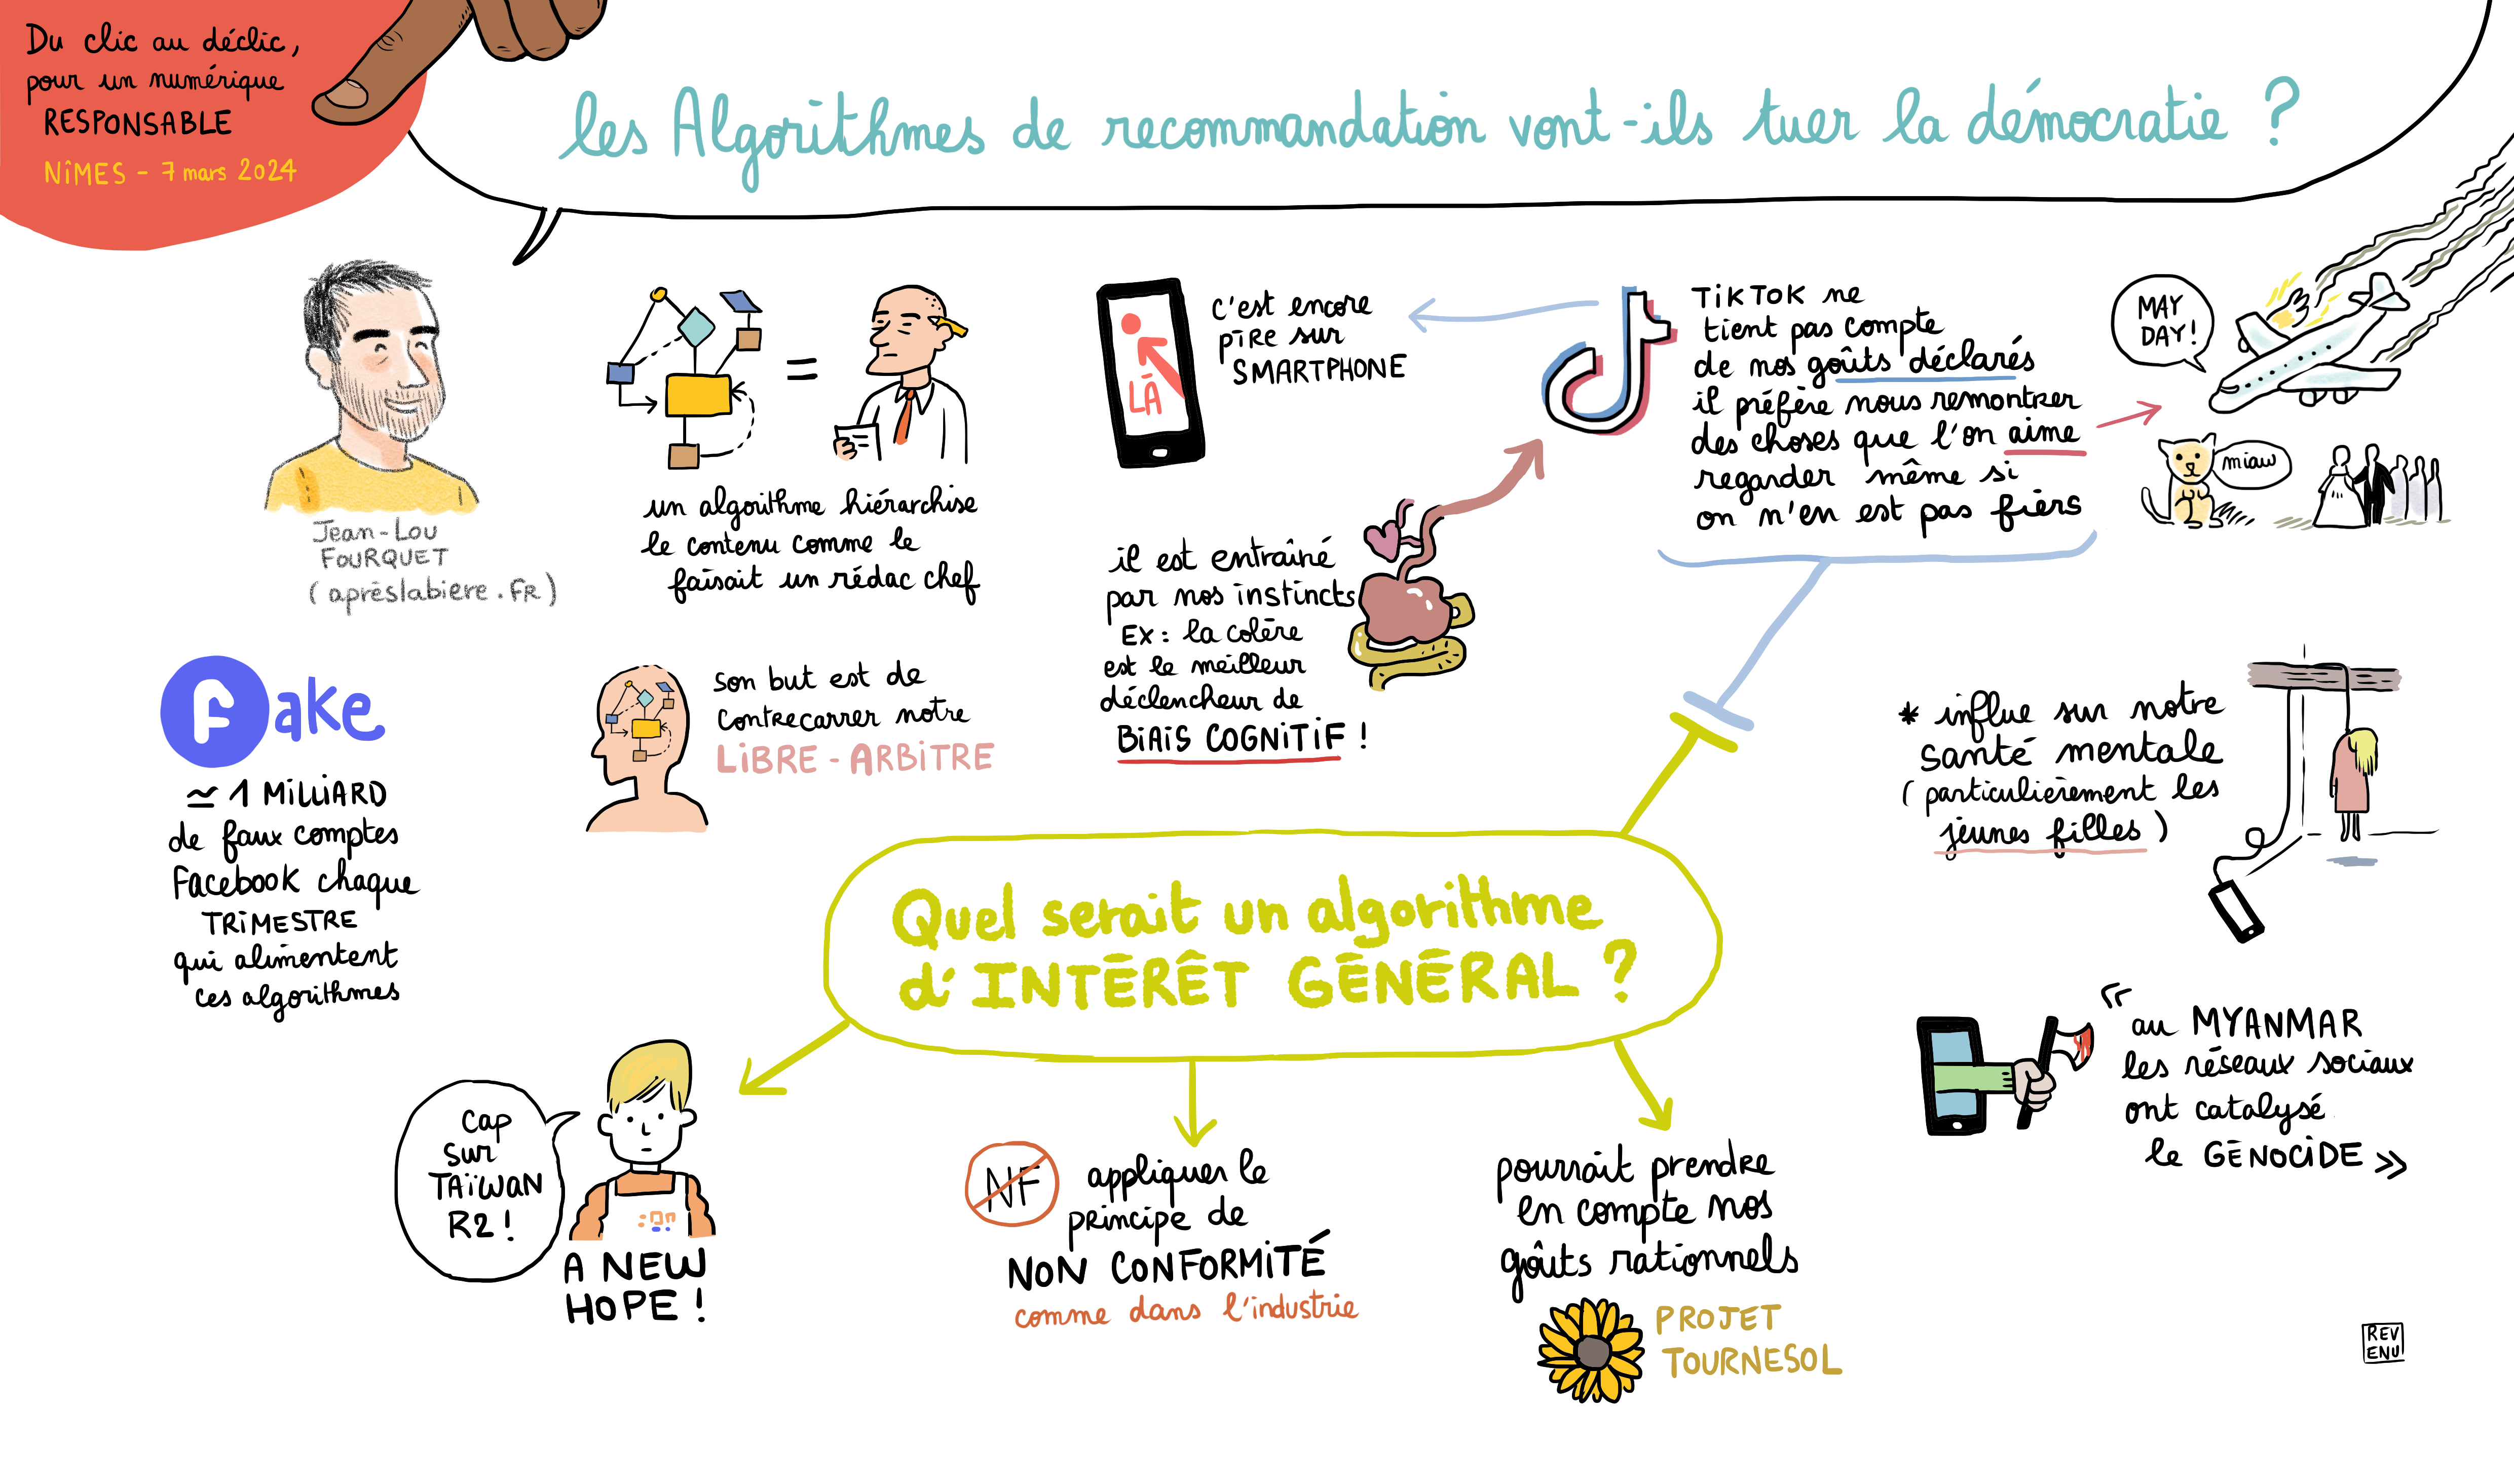 Du clic au déclic,
pour un numérique
RESPONSABLE
NÎMES - 7 mars 2024
les Algorithmes de recommandation vont-ils tuer la démocratie ?
Jean-Lou
FOURQUET
(aprèslabiere.FR)
=
un algorithme hiérarchise
le contenu comme le
faisait un rédac chef
LÀ
c'est encore
pire sur
SMARTPHONE
TikTok ne
tient pas compte
de nos goûts déclarés
il préfère nous remontrer
des choses que l'on aime
regarder même si
on n'en est pas fiers
MAY
DAY!
miaw
il est entraîné
par nos instincts
EX : la colère
est le meilleur
déclencheur de
BIAIS COGNITIF !
Fake
≃ 1 MILLIARD
de faux comptes
Facebook chaque
TRIMESTRE
qui alimentent
ces algorithmes
son but est de
contrecarrer notre
LIBRE-ARBITRE
* influe sur notre
santé mentale
(particulièrement les
jeunes filles)
Quel serait un algorithme
d'INTÉRÊT GÉNÉRAL ?
« au MYANMAR
les réseaux sociaux
ont catalysé
le GÉNOCIDE »
Cap
sur
TAÏWAN
R2 !
A NEW
HOPE !
NF
appliquer le
principe de
NON CONFORMITÉ
comme dans l'industrie
pourrait prendre
en compte nos
goûts rationnels
PROJET
TOURNESOL
REV
ENU